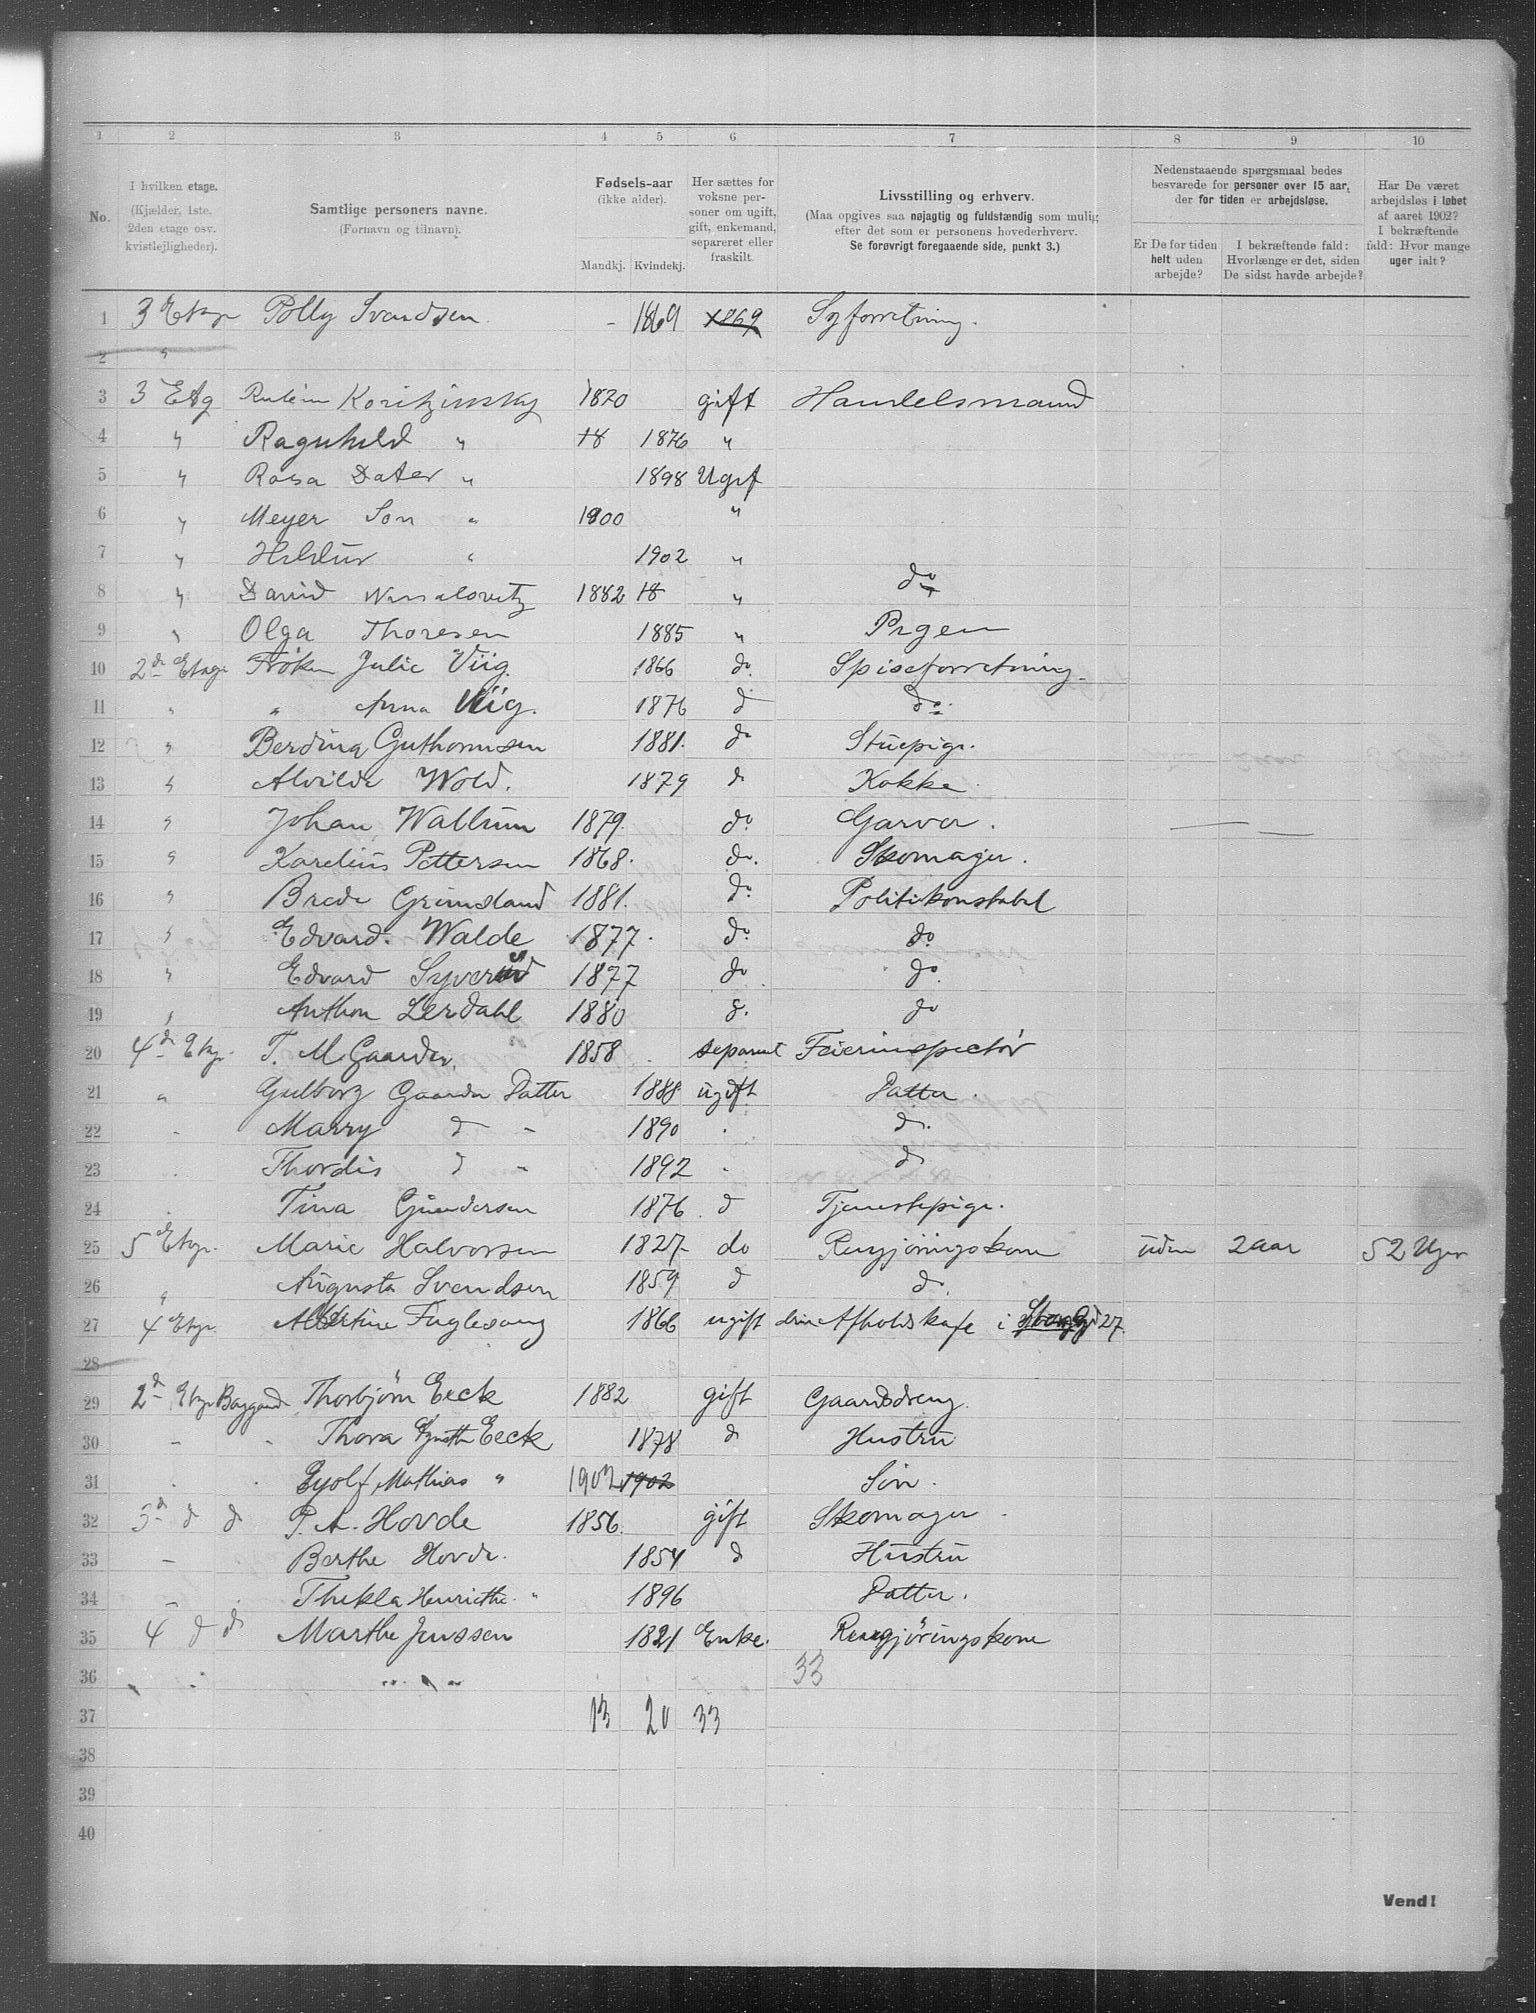 1 2 3 4 5 6 7 8 9 10
No. I hvilken etage. (Kjælder, 1ste. 2den etage osv. kvistlejligheder). Samtlige personers navne. (Fornavn og tilnavn). Fødsels-aar (ikke alder). Mandkj. Kvindekj. Her sættes for voksne personer om ugift, gift, enkemand, separeret eller fraskilt. Livsstilling og erhverv. (Maa opgives saa nøjagtig og fuldstændig som mulig efter det som er personens hovederhverv. Se forøvrigt foregaaende side, punkt 3.) Nedenstaaende spørgsmaal bedes besvarede for personer over 15 aar, der for tiden er arbejdsløse. Er De for tiden helt uden arbejde? I bekræftende fald: Hvorlænge er det, siden De sidst havde arbejde? Har De været arbejdsløs i løbet af aaret 1902? I bekræftende fald: Hvor mange uger ialt?
1 3 Etage Polly Svendsen - 1869 1869 Syforretning.
2 "
3 3 Etg Koritzinsky 1870 gift Handelsmand
4 " Ragnhild " 18 1876 "
5 " Rosa Dater " 1898 Ugif
6 " Meyer Son " 1900 "
7 " Hildur " 1902 "
8 " David 1882 18 " do
9 " Olga Thoresen 1885 " Pigen
10 2d Etage Frøken Julie Viig. 1866 do. Spiseforretning.
11 " " Anna Viig. 1876 d do.
12 " Berdina Guthormsen 1881. do Stuepige.
13 " Alvilde Wold. 1879 d Kokke
14 " Johan Wallum 1879. do. Garver.
15 " Karelius Pettersen 1868. do. Skomager.
16 " Brede Grimsland 1881. do Politikonstabel
17 " Edvard. Walde 1877. do. do
18 " Edvard 1877 do do
19 " Anthon Lerdahl 1880 d. do
20 4d Etg. T. M. Gaarder. 1858 separent Feierinspectør
21 " Gulborg Gaarder Datter 1888 ugift Datter.
22 " Marry d " 1890 " d.
23 " Thordis d " 1892 " d
24 " Tina Gundersen 1876 d Tjenestepige.
25 5 Etg. Marie Halvorsen 1827 do Rengjøringskone uden 2 aar 52 Uger
26 " Augusta Svendsen 1859 d d.
27 4 Etg. Fuglesang 1866 ugift Afholdskafe i 27.
28
29 2d Etg Baggaard Thorbjørn Eeck 1882 gift Gaardsdreng.
30 " " Thora Eeck 1878 d Hustru
31 " " Eyolf Mathias " 1902 1902 Søn.
32 3d d d P. A. Hovde 1856. gift Skomager
33 - Berthe Hovde. 1854 d Hustru
34 - Thekla Henriethe " 1896 Datter.
35 4 d d Marthe Jenssen 1821 Enke. Rengjøringskone
36 33
37 13 20 33
38
39
40
Vend!